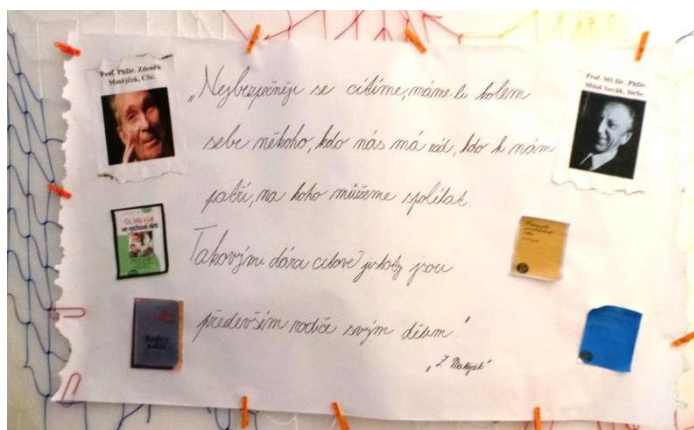 Prof. PhDr. Zdeněk
Matějček, CSc.
Prof. MUDr. PhDr.
Miloš Sovák, DrSc.
„Nejbezpečněji se cítíme, máme-li kolem
sebe někoho, kdo nás má rád, kdo k nám
patří, na koho můžeme spoléhat.
Takovými dárci citové jistoty jsou
především rodiče svým dětem."
Co, kdy a jak
ve výchově dětí